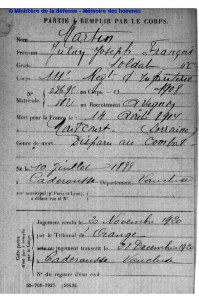 © Ministère de la défense - Mémoire des hommes
PARTIE À REMPLIR PAR LE CORPS.
Nom Martin
Prénoms Joseph François
Grade Soldat
Corps Régt d'Infanterie
N° au Corps. — Cl. 1908
Matricule. au Recrutement Avignon
Mort pour la France le 14 Août 1914
à (Lorraine)
Genre de mort Disparu au Combat
Né le 10 Juillet 1888
à Caderousse Département Vaucluse
Jugement rendu le 2 Novembre 1920
par le Tribunal d'Orange
acte ou jugement transcrit le 21 Décembre 1920
à Caderousse Vaucluse
N° du registre d'état civil